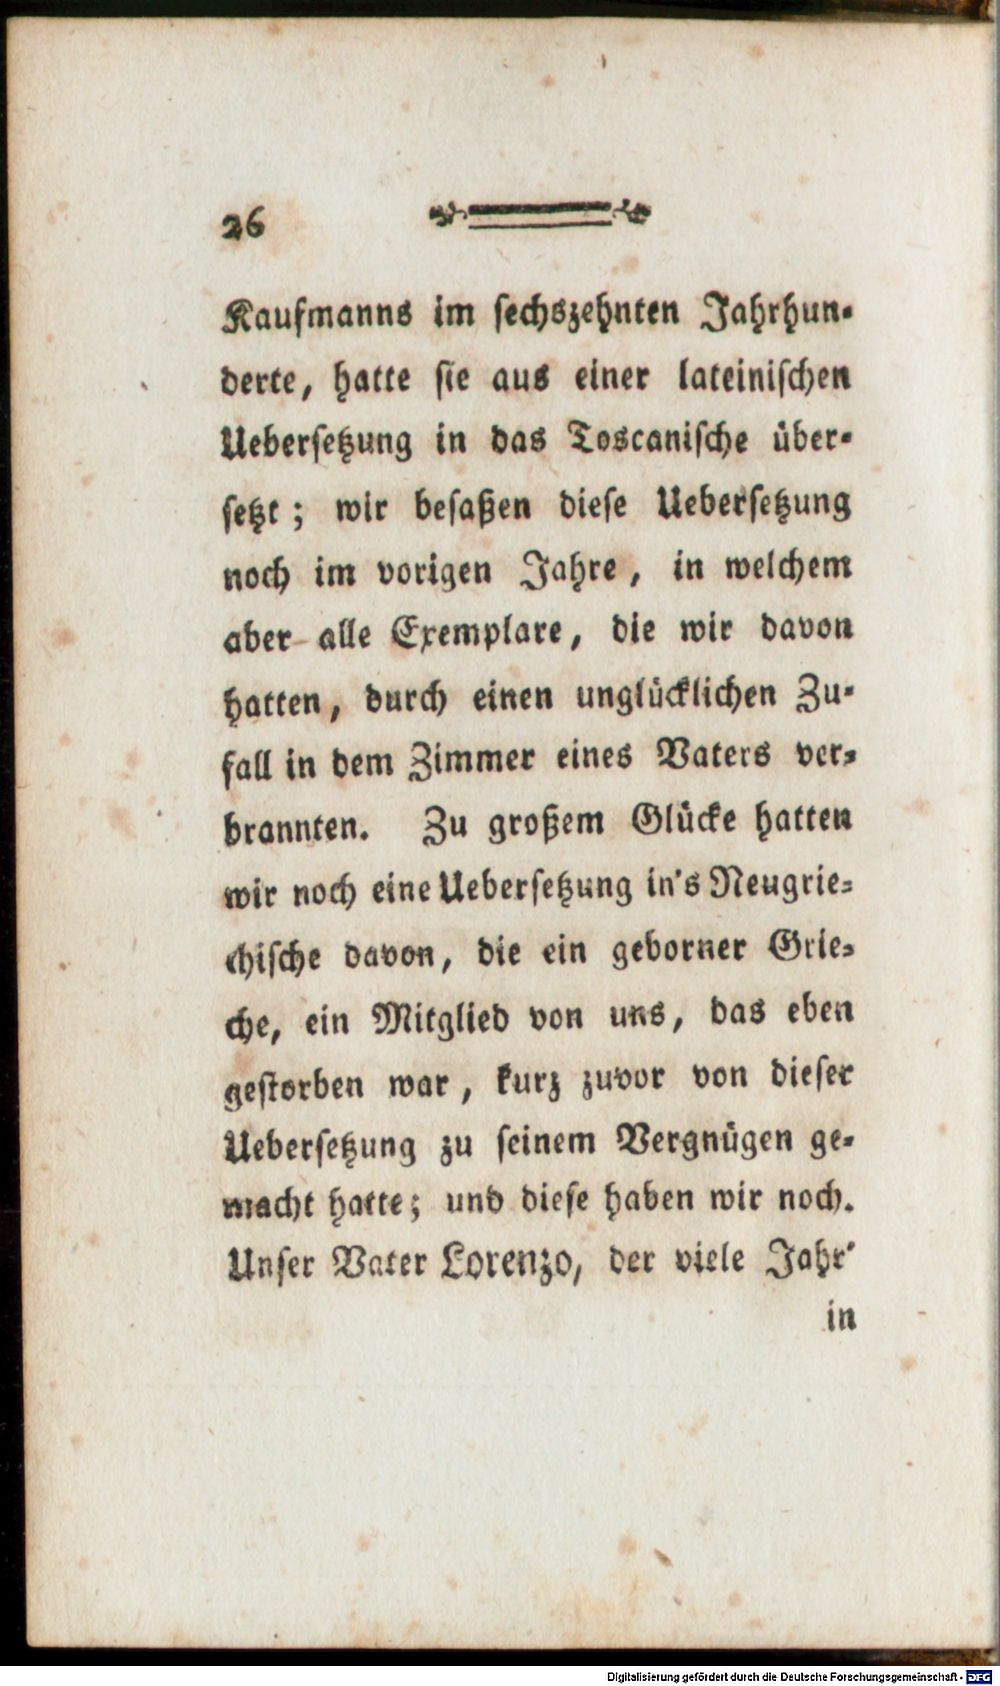 26
Kaufmanns im sechszehnten Jahrhun-
derte, hatte sie aus einer lateinischen
Uebersetzung in das Toscanische über-
setzt; wir besaßen diese Uebersetzung
noch im vorigen Jahre, in welchem
aber alle Exemplare, die wir davon
hatten, durch einen unglücklichen Zu-
fall in dem Zimmer eines Vaters ver-
brannten. Zu großem Glücke hatten
wir noch eine Uebersetzung in's Neugrie-
chische davon, die ein geborner Grie-
che, ein Mitglied von uns, das eben
gestorben war, kurz zuvor von dieser
Uebersetzung zu seinem Vergnügen ge-
macht hatte; und diese haben wir noch.
Unser Vater Lorenzo, der viele Jahr'
in
Digitalisierung gefördert durch die Deutsche Forschungsgemeinschaft - DFG